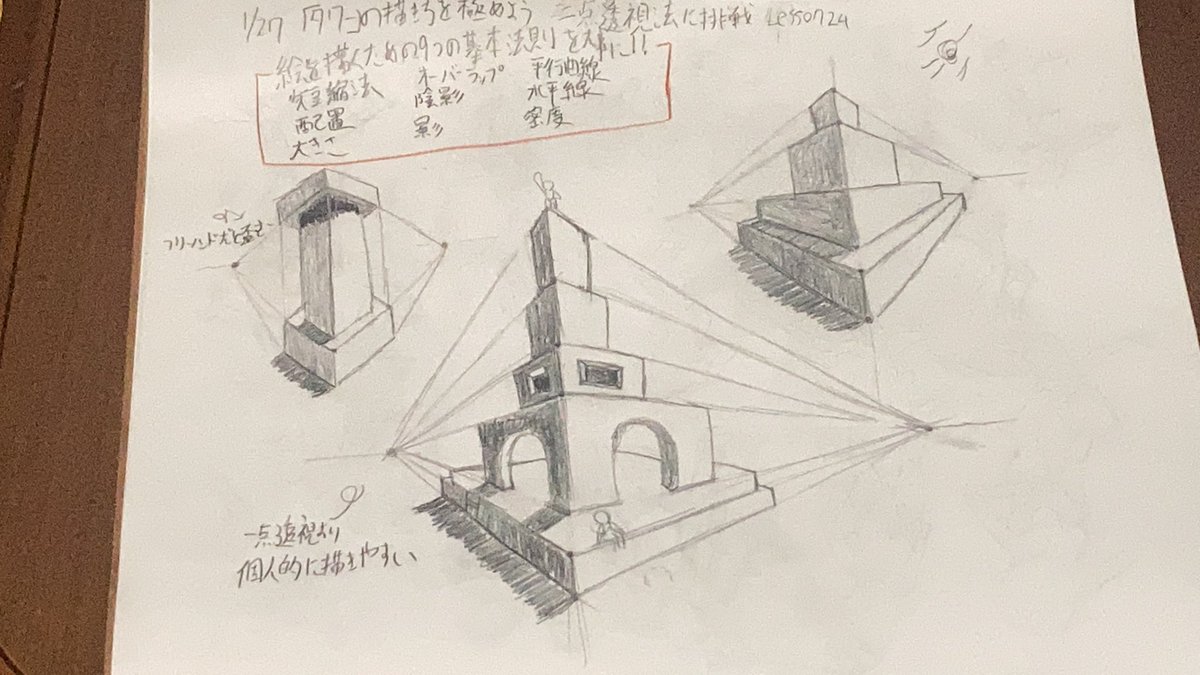 1/27 「タワー」の描き方を極めよう 二点透視法に挑戦 Lesson24
絵を描くための9つの基本法則を大事に!!
短縮法 オーバーラップ 平行曲線
配置 陰影 水平線
大きさ 影 密度
フリーハンドだと歪む
一点透視より
個人的に描きやすい